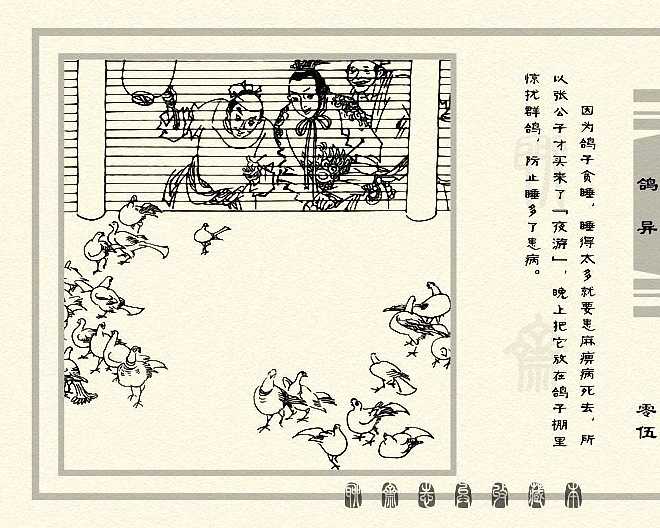 因为鸽子贪睡，睡得太多就要患麻痹病死去，所
以张公子才买来了「夜游」，晚上把它放在鸽子棚里
惊扰群鸽，防止睡多了患病。
鸽异
零伍